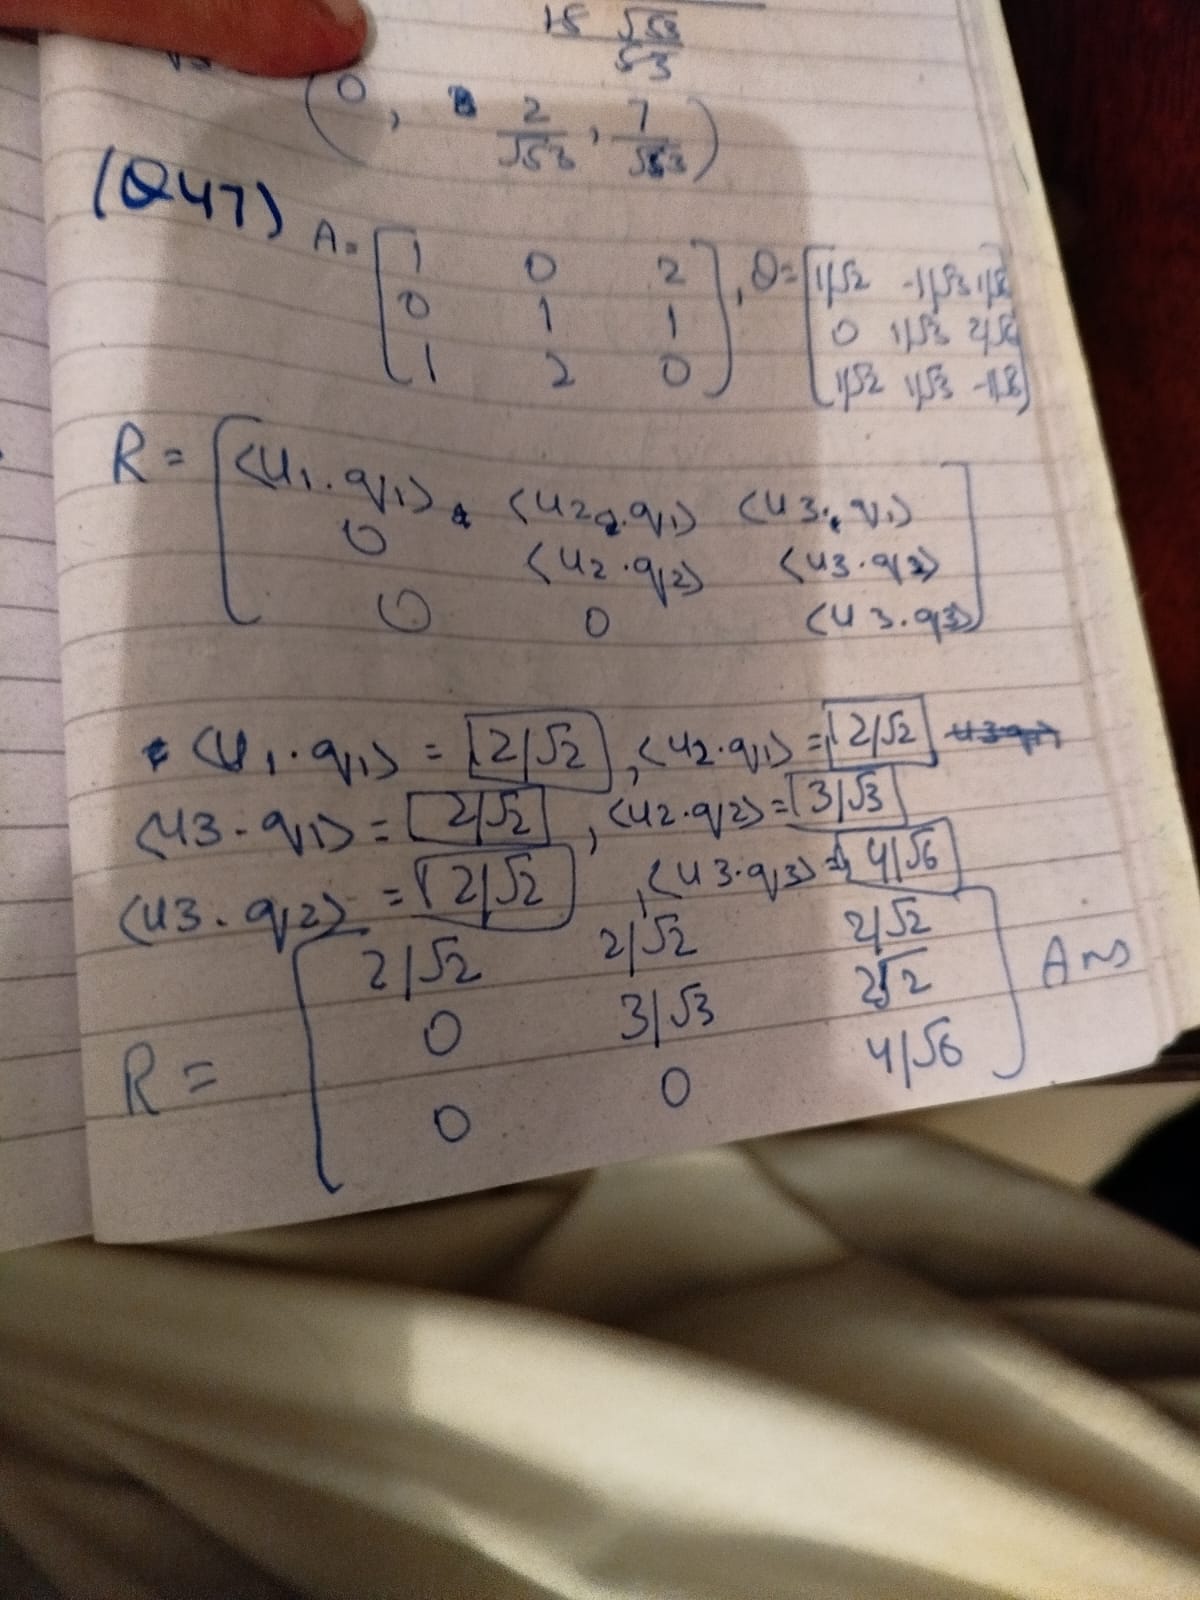 15 √53
√53
(0, 2/√53, 7/√53)
(Q47) A= [1 0 2], Q= [1/√2 -1/√3 1/√6]
[0 1 1] [0 1/√3 2/√6]
[1 2 0] [1/√2 1/√3 -1/√6]
R = [<u1.q1> <u2.q1> <u3.q1>]
[0 <u2.q2> <u3.q2>]
[0 0 <u3.q3>]
<u1.q1> = 2/√2, <u2.q1> = 2/√2
<u3.q1> = 2/√2, <u2.q2> = 3/√3
<u3.q2> = 2/√2, <u3.q3> = 4/√6
R = [2/√2 2/√2 2/√2] Ans
[0 3/√3 2√2]
[0 0 4/√6]